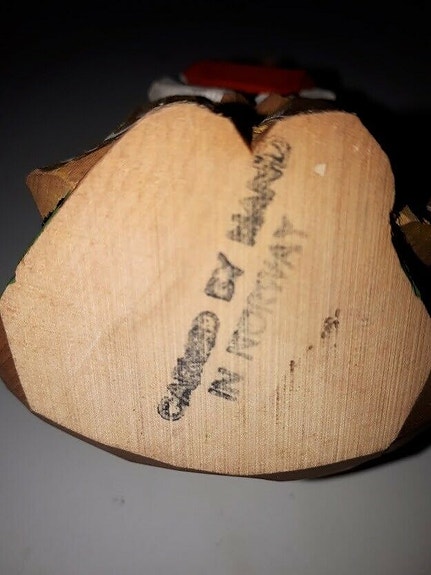 CARVED BY HAND
IN NORWAY